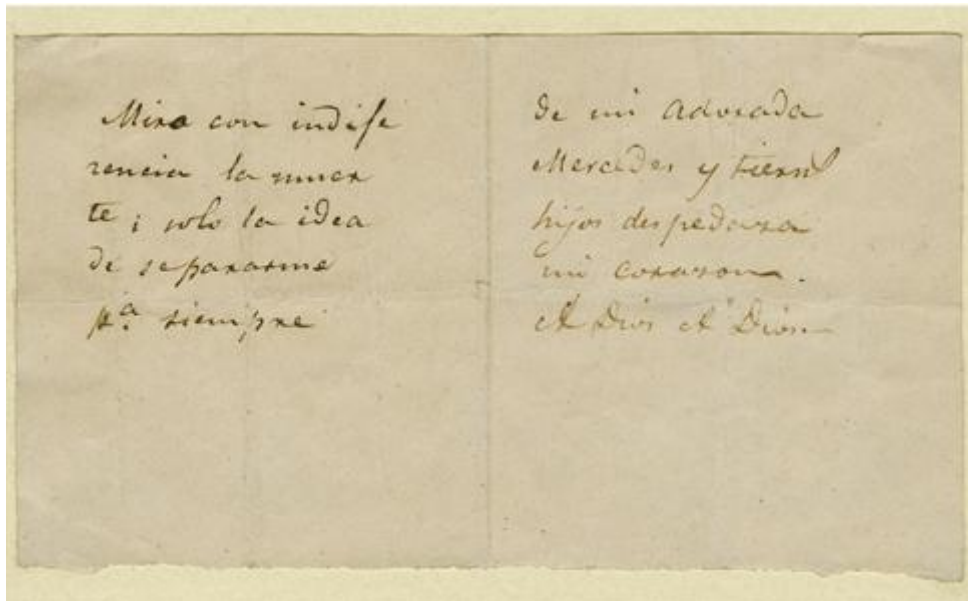 Miro con indife
rencia la muer
te; solo la idea
de separarme
pa. siempre
de mi adorada
Mercedes y tiernos
hijos despedaza
mi corazon.
A Dios A Dios